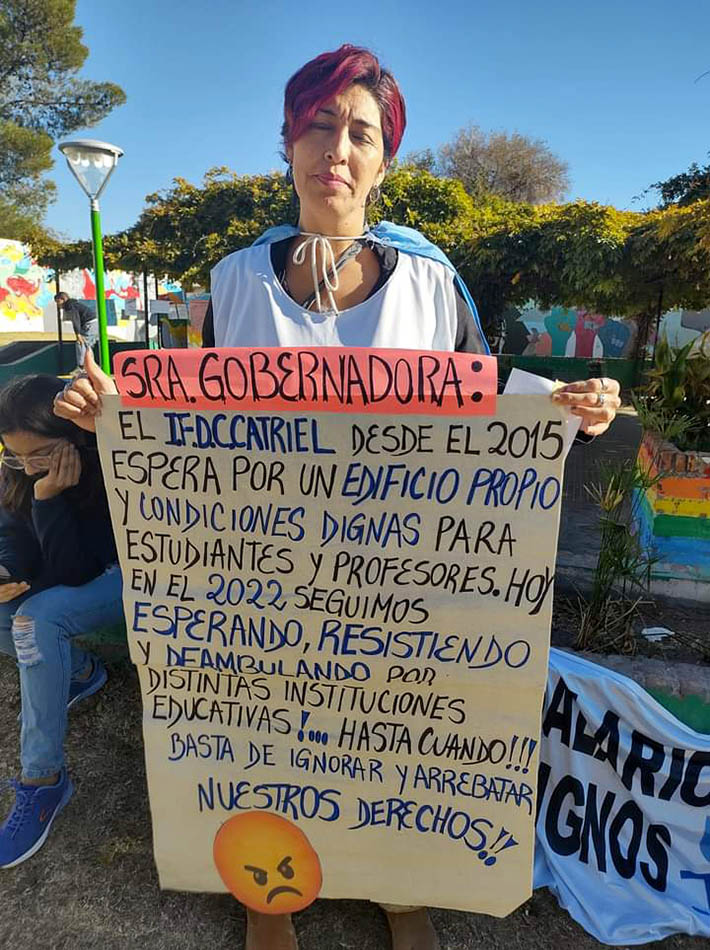 SRA. GOBERNADORA:
EL I.F.D.C.CATRIEL DESDE EL 2015
ESPERA POR UN EDIFICIO PROPIO
Y CONDICIONES DIGNAS PARA
ESTUDIANTES Y PROFESORES. HOY
EN EL 2022 SEGUIMOS
ESPERANDO, RESISTIENDO
Y DEAMBULANDO POR
DISTINTAS INSTITUCIONES
EDUCATIVAS!... HASTA CUANDO!!!
BASTA DE IGNORAR Y ARREBATAR
NUESTROS DERECHOS!!
ALARIO
IGNOS